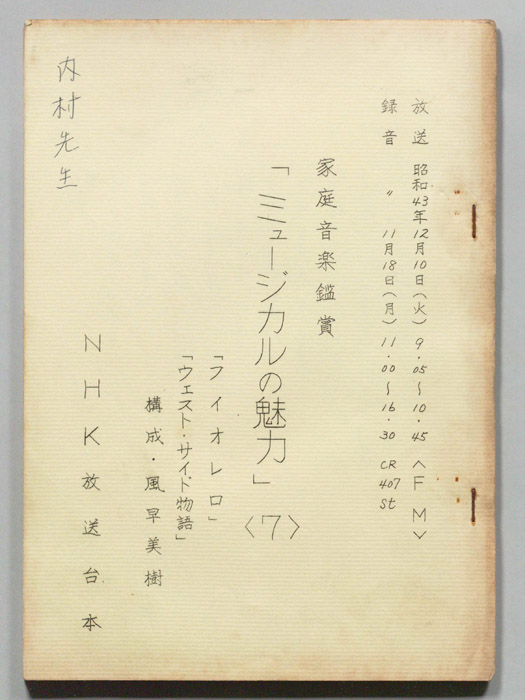 放送 昭和43年12月10日(火) 9.05〜10.45 <FM>
録音 〃 11月18日(月) 11.00〜16.30 CR 407 St
家庭音楽鑑賞
「ミュージカルの魅力」〈7〉
「フィオレロ」
「ウェスト・サイド物語」
構成・風早美樹
NHK放送台本
内村先生